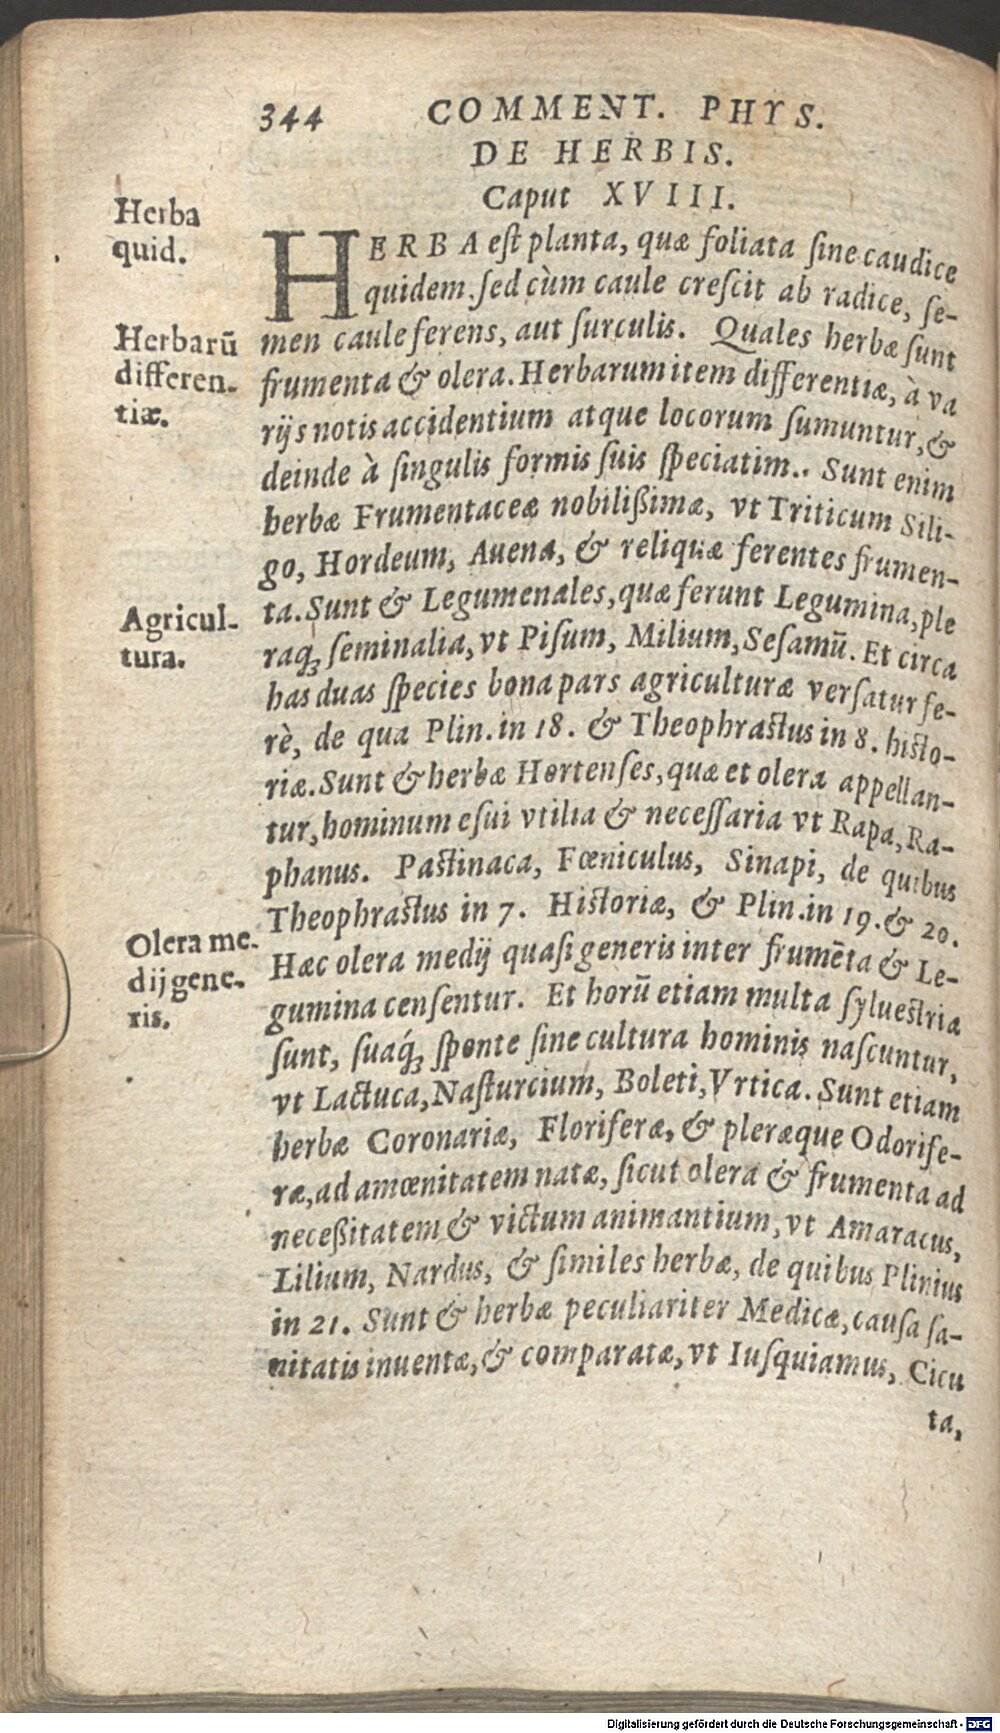 344 COMMENT. PHYS.
DE HERBIS.
Caput XVIII.
Herba
quid.
HERBA est planta, quæ foliata sine caudice
quidem. sed cùm caule crescit ab radice, se-
men caule ferens, aut surculis. Quales herbæ sunt
Herbarū
differen-
tiæ.
frumenta & olera. Herbarum item differentiæ, à va
rijs notis accidentium atque locorum sumuntur, &
deinde à singulis formis suis speciatim.. Sunt enim
herbæ Frumentaceæ nobilißimæ, vt Triticum Sili-
go, Hordeum, Auena, & reliquæ ferentes frumen-
ta. Sunt & Legumenales, quæ ferunt Legumina, ple
Agricul-
tura.
raq́; seminalia, vt Pisum, Milium, Sesamū. Et circa
has duas species bona pars agriculturæ versatur fe-
rè, de qua Plin. in 18. & Theophrastus in 8. histo-
riæ. Sunt & herbæ Hortenses, quæ et olera appellan-
tur, hominum esui vtilia & necessaria vt Rapa, Ra-
phanus. Pastinaca, Fœniculus, Sinapi, de quibus
Theophrastus in 7. Historiæ, & Plin. in 19. & 20.
Olera me-
dij gene-
ris.
Hæc olera medij quasi generis inter frumēta & Le-
gumina censentur. Et horū etiam multa syluestria
sunt, suaq́; sponte sine cultura hominis nascuntur,
vt Lactuca, Nasturcium, Boleti, Vrtica. Sunt etiam
herbæ Coronariæ, Floriferæ, & pleræque Odorife-
ræ, ad amœnitatem natæ, sicut olera & frumenta ad
neceßitatem & victum animantium, vt Amaracus,
Lilium, Nardus, & similes herbæ, de quibus Plinius
in 21. Sunt & herbæ peculiariter Medicæ, causa sa-
nitatis inuentæ, & comparatæ, vt Iusquiamus, Cicu
ta,
Digitalisierung gefördert durch die Deutsche Forschungsgemeinschaft - DFG